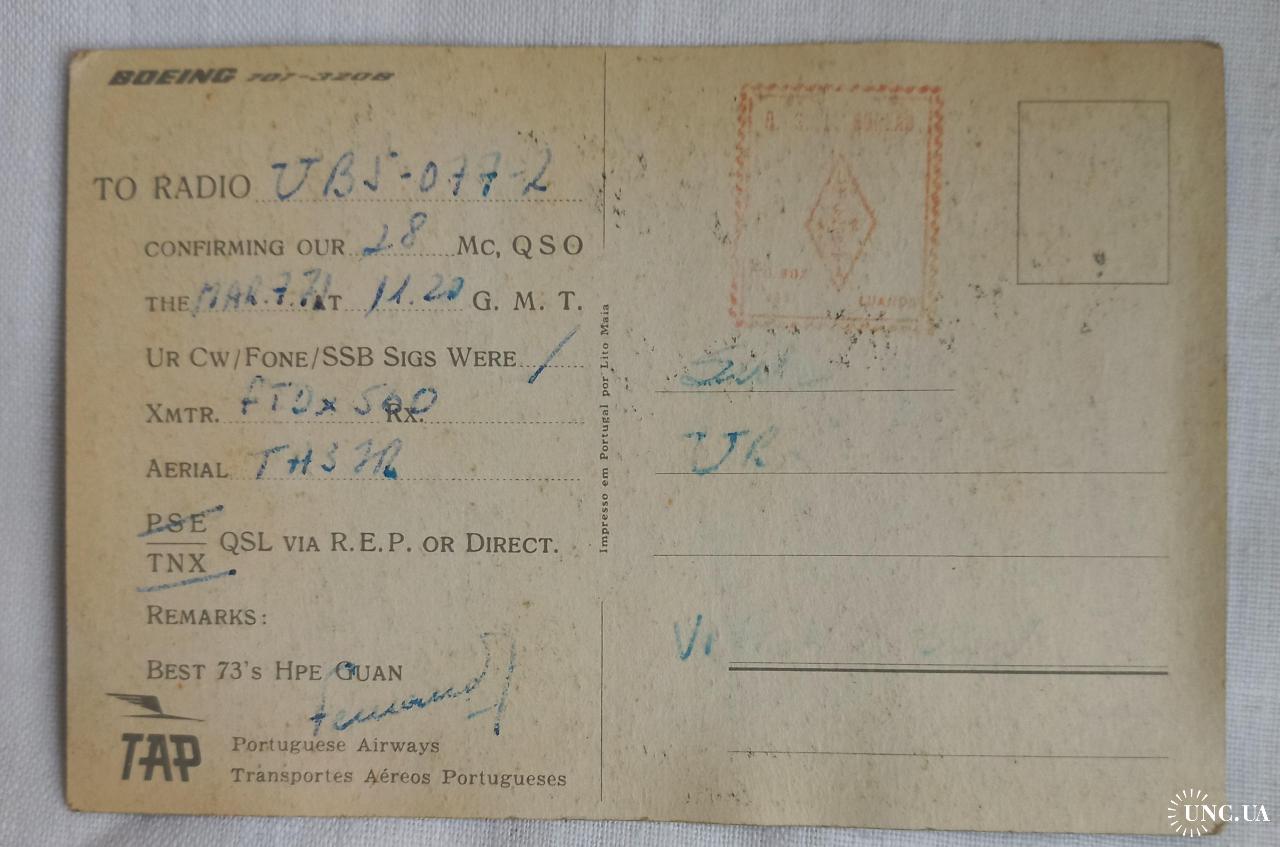 BOEING 707-320B
TO RADIO UB5-077-2
CONFIRMING OUR 28 Mc, QSO
THE MAR.7.71 AT 11.20 G. M. T.
UR CW/FONE/SSB SIGS WERE /
XMTR. FTDX 500 RX.
AERIAL TH3JR
PSE
TNX QSL VIA R.E.P. OR DIRECT.
REMARKS:
BEST 73's HPE GUAN
TAP Portuguese Airways
Transportes Aéreos Portugueses
Impresso em Portugal por Lito Maia
BOX
LUANDA
UR
UNC.UA